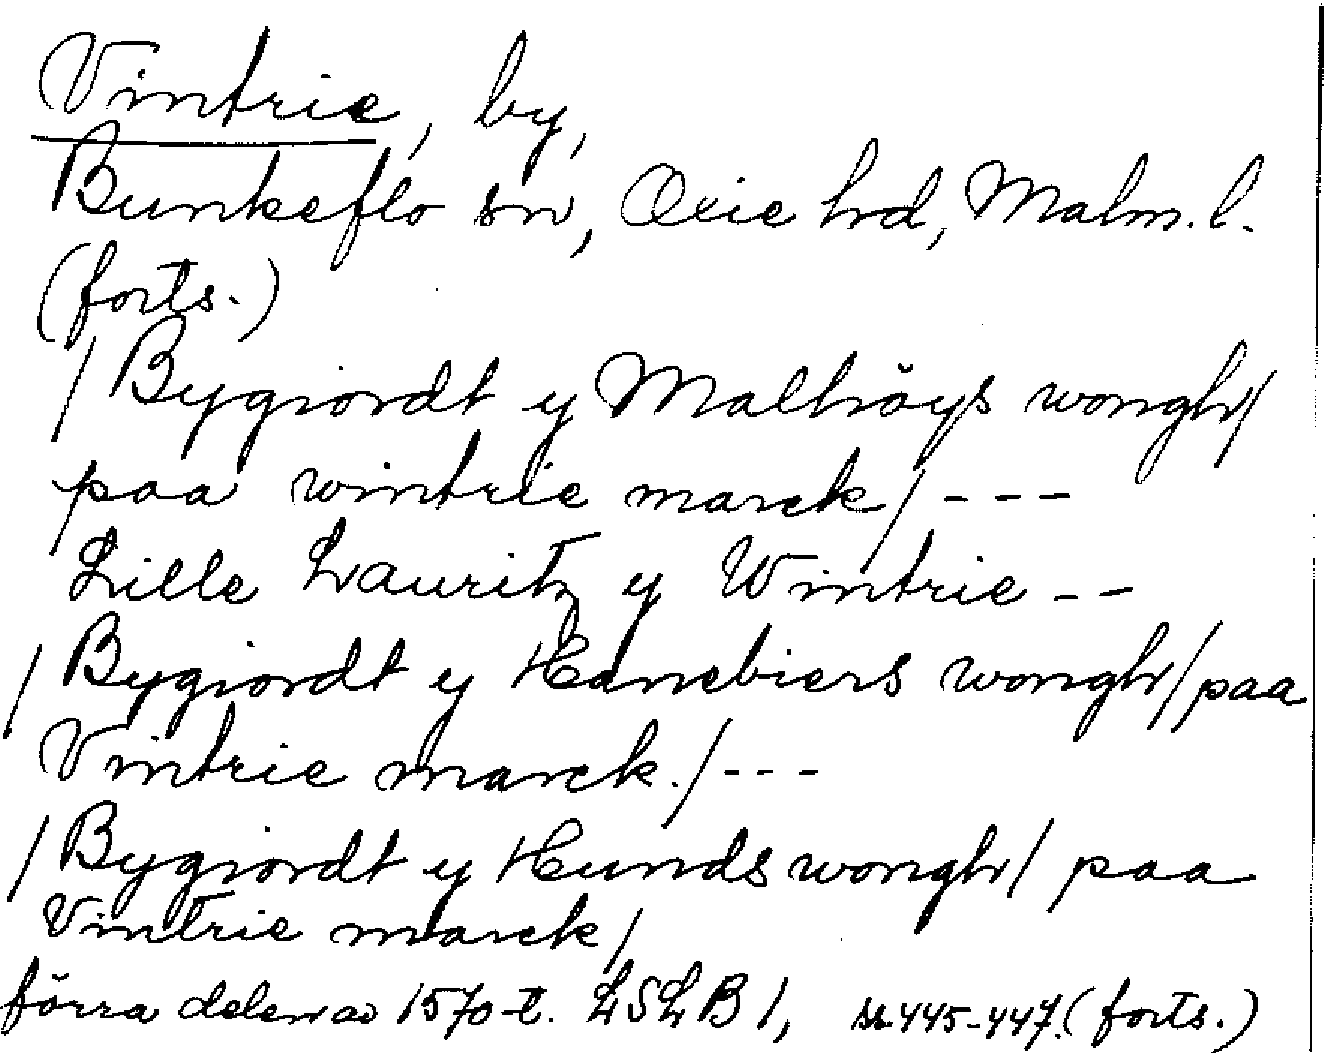 Vintrie, by,
Bunkeflo sn, Oxie hd, Malm. l.
(forts.)
/Bygiordt y Malhöys wongh/
paa wintrie marck/ - - -
Lille Lauritz y Wintrie - -
/Bygiordt y Hanebiers wongh/paa
Vintrie marck./ - - -
/Bygiordt y Hunds wongh/ paa
Vintrie marck/
förra delen av 1570-t. LSLB 1, s. 445-447. (forts.)